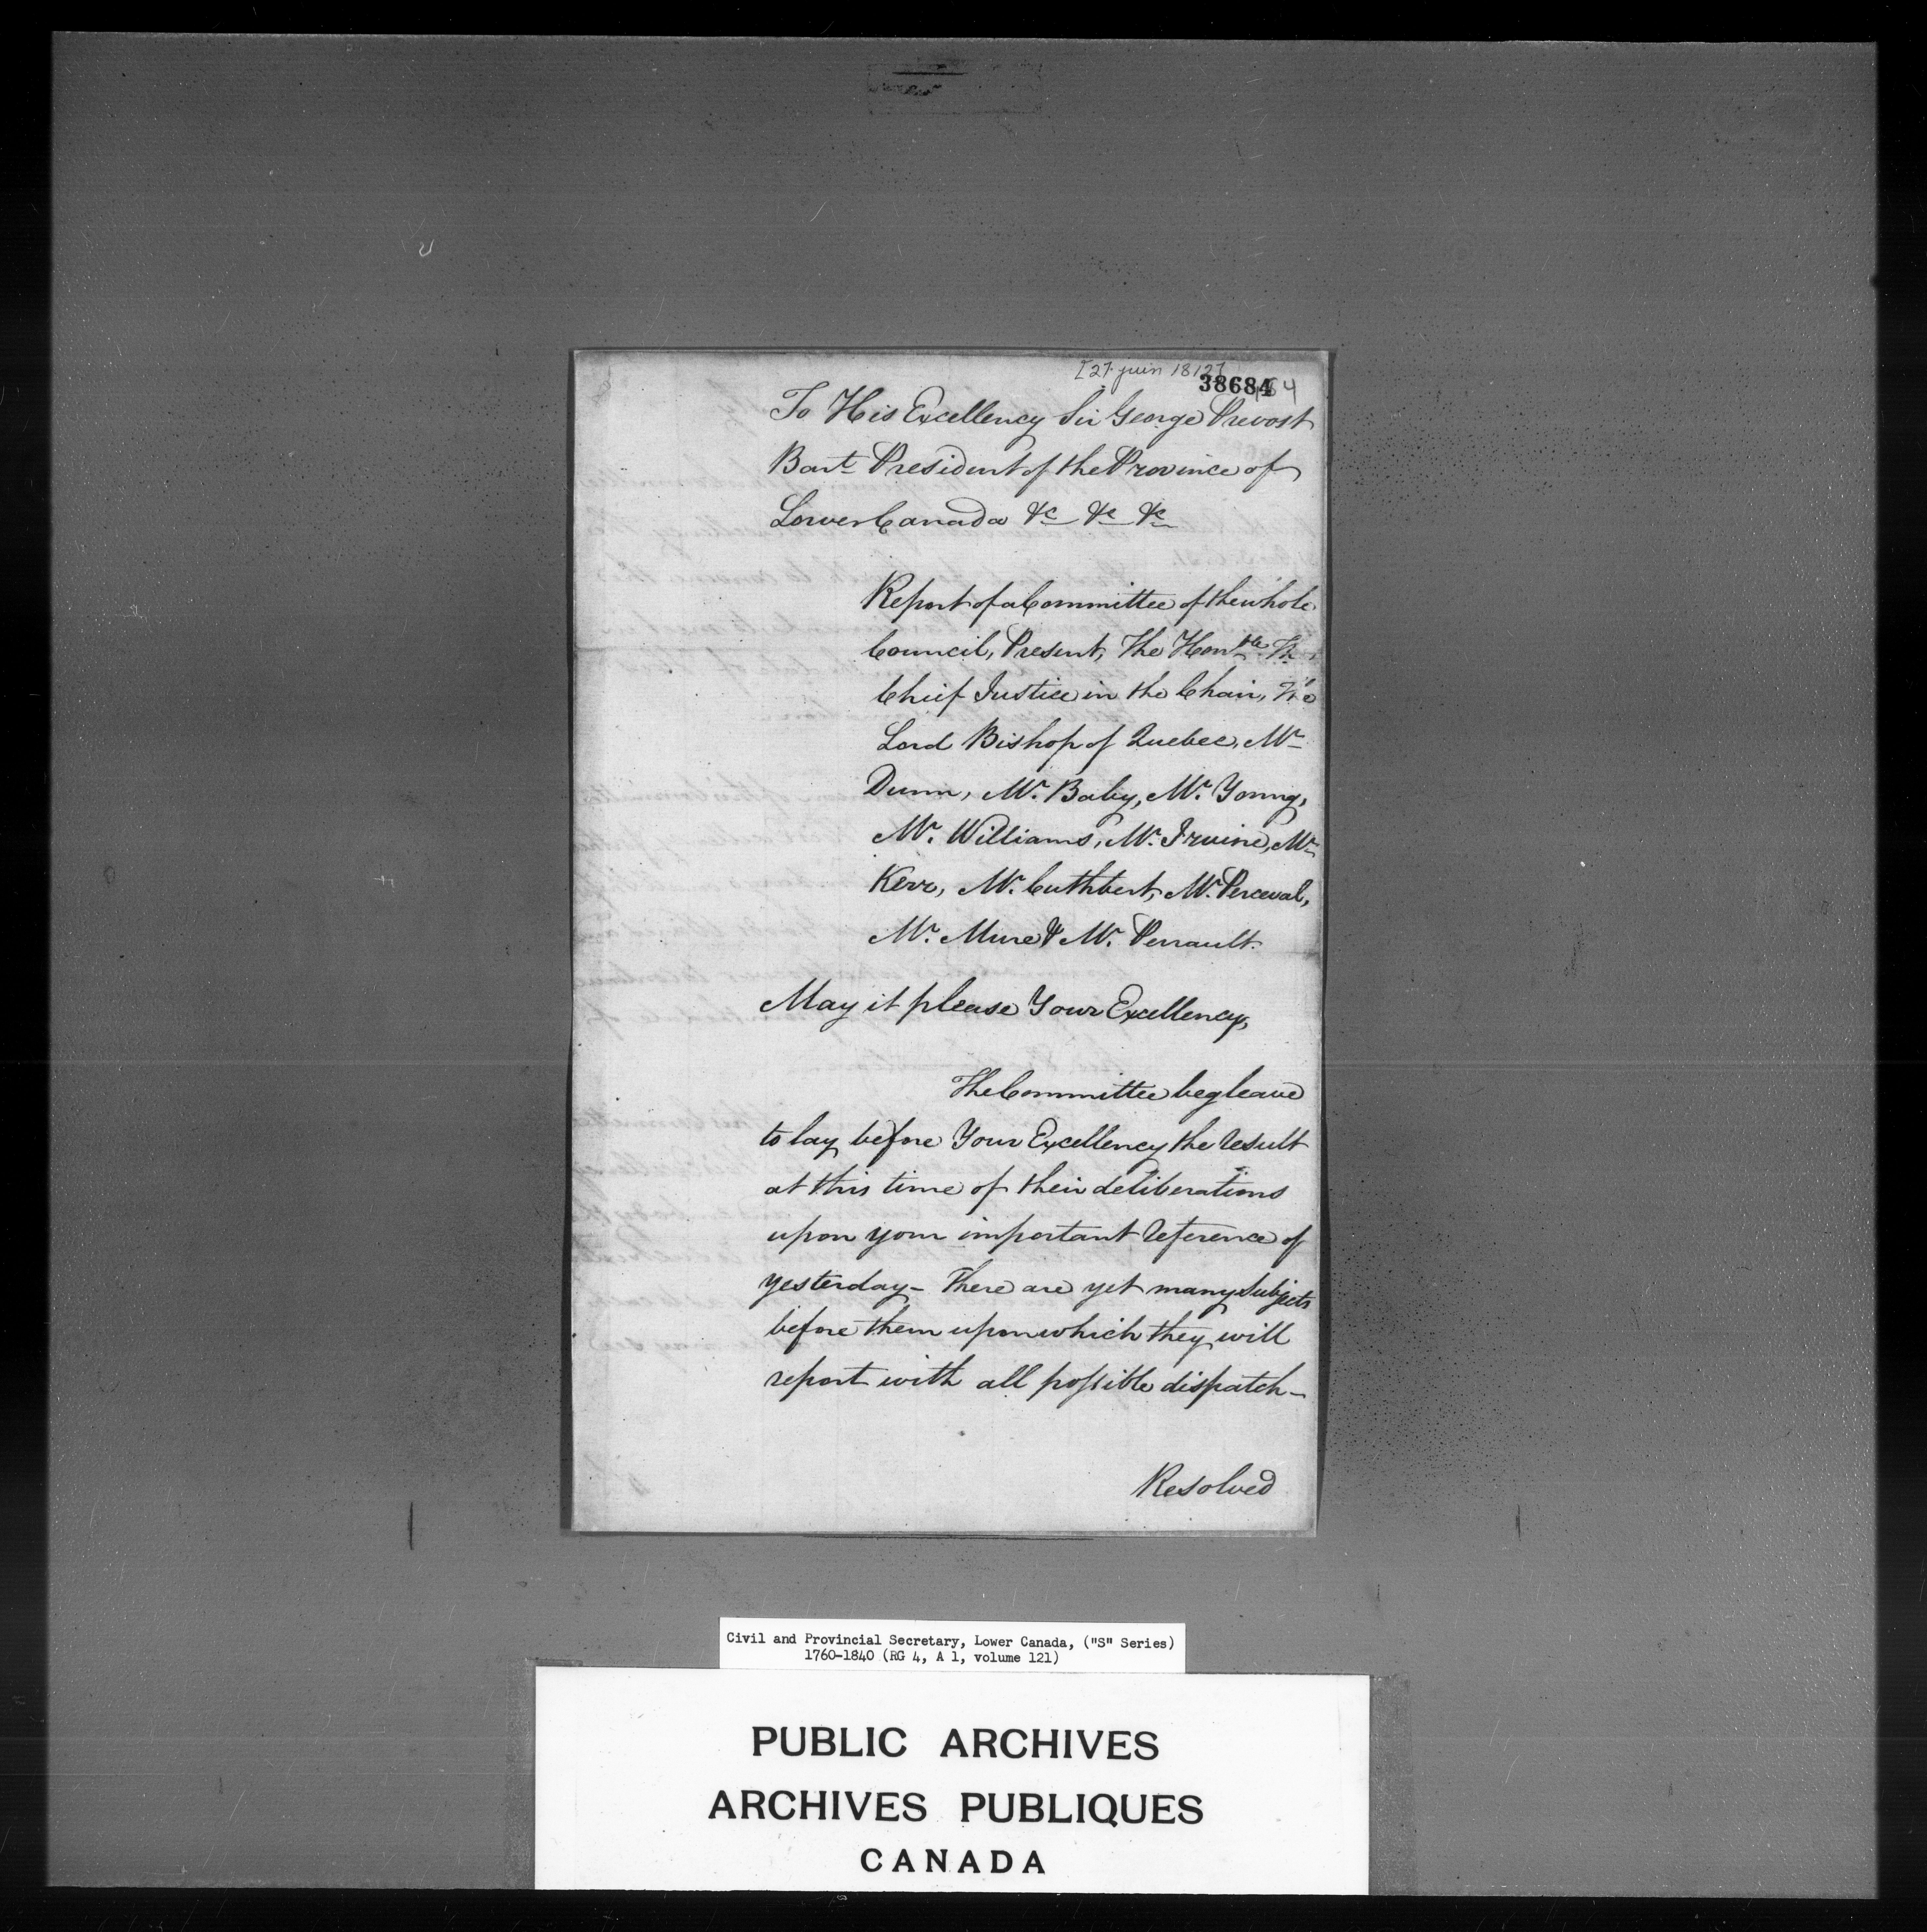 [27 juin 1812]
38684
To His Excellency Sir George Prevost
Bart President of the Province of
Lower Canada &c &c &c
Report of a Committee of the whole
Council, Present, The Honble The
Chief Justice in the Chair, The
Lord Bishop of Quebec, Mr
Dunn, Mr. Baby, Mr. Young,
Mr. Williams, Mr. Irvine, Mr
Kerr, Mr. Cuthbert, Mr. Perceval,
Mr. Mure & Mr. Perrault.
May it please Your Excellency,
The Committee beg leave
to lay before Your Excellency the result
at this time of their deliberations
upon your important reference of
yesterday - There are yet many Subjects
before them upon which they will
report with all possible dispatch -
Resolved
Civil and Provincial Secretary, Lower Canada, ("S" Series)
1760-1840 (RG 4, A 1, volume 121)
PUBLIC ARCHIVES
ARCHIVES PUBLIQUES
CANADA